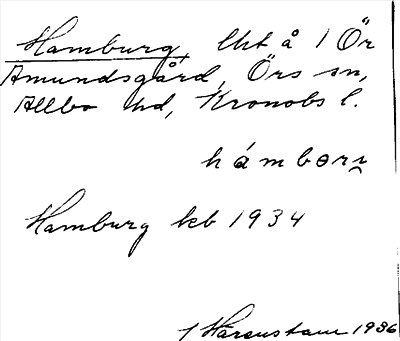 Hamburg, lht å 1 Ör
Amundsgård, Örs sn,
Allbo hd, Kronobs l.
hámbərı̯
Hamburg kb 1934
J Harenstam 1936